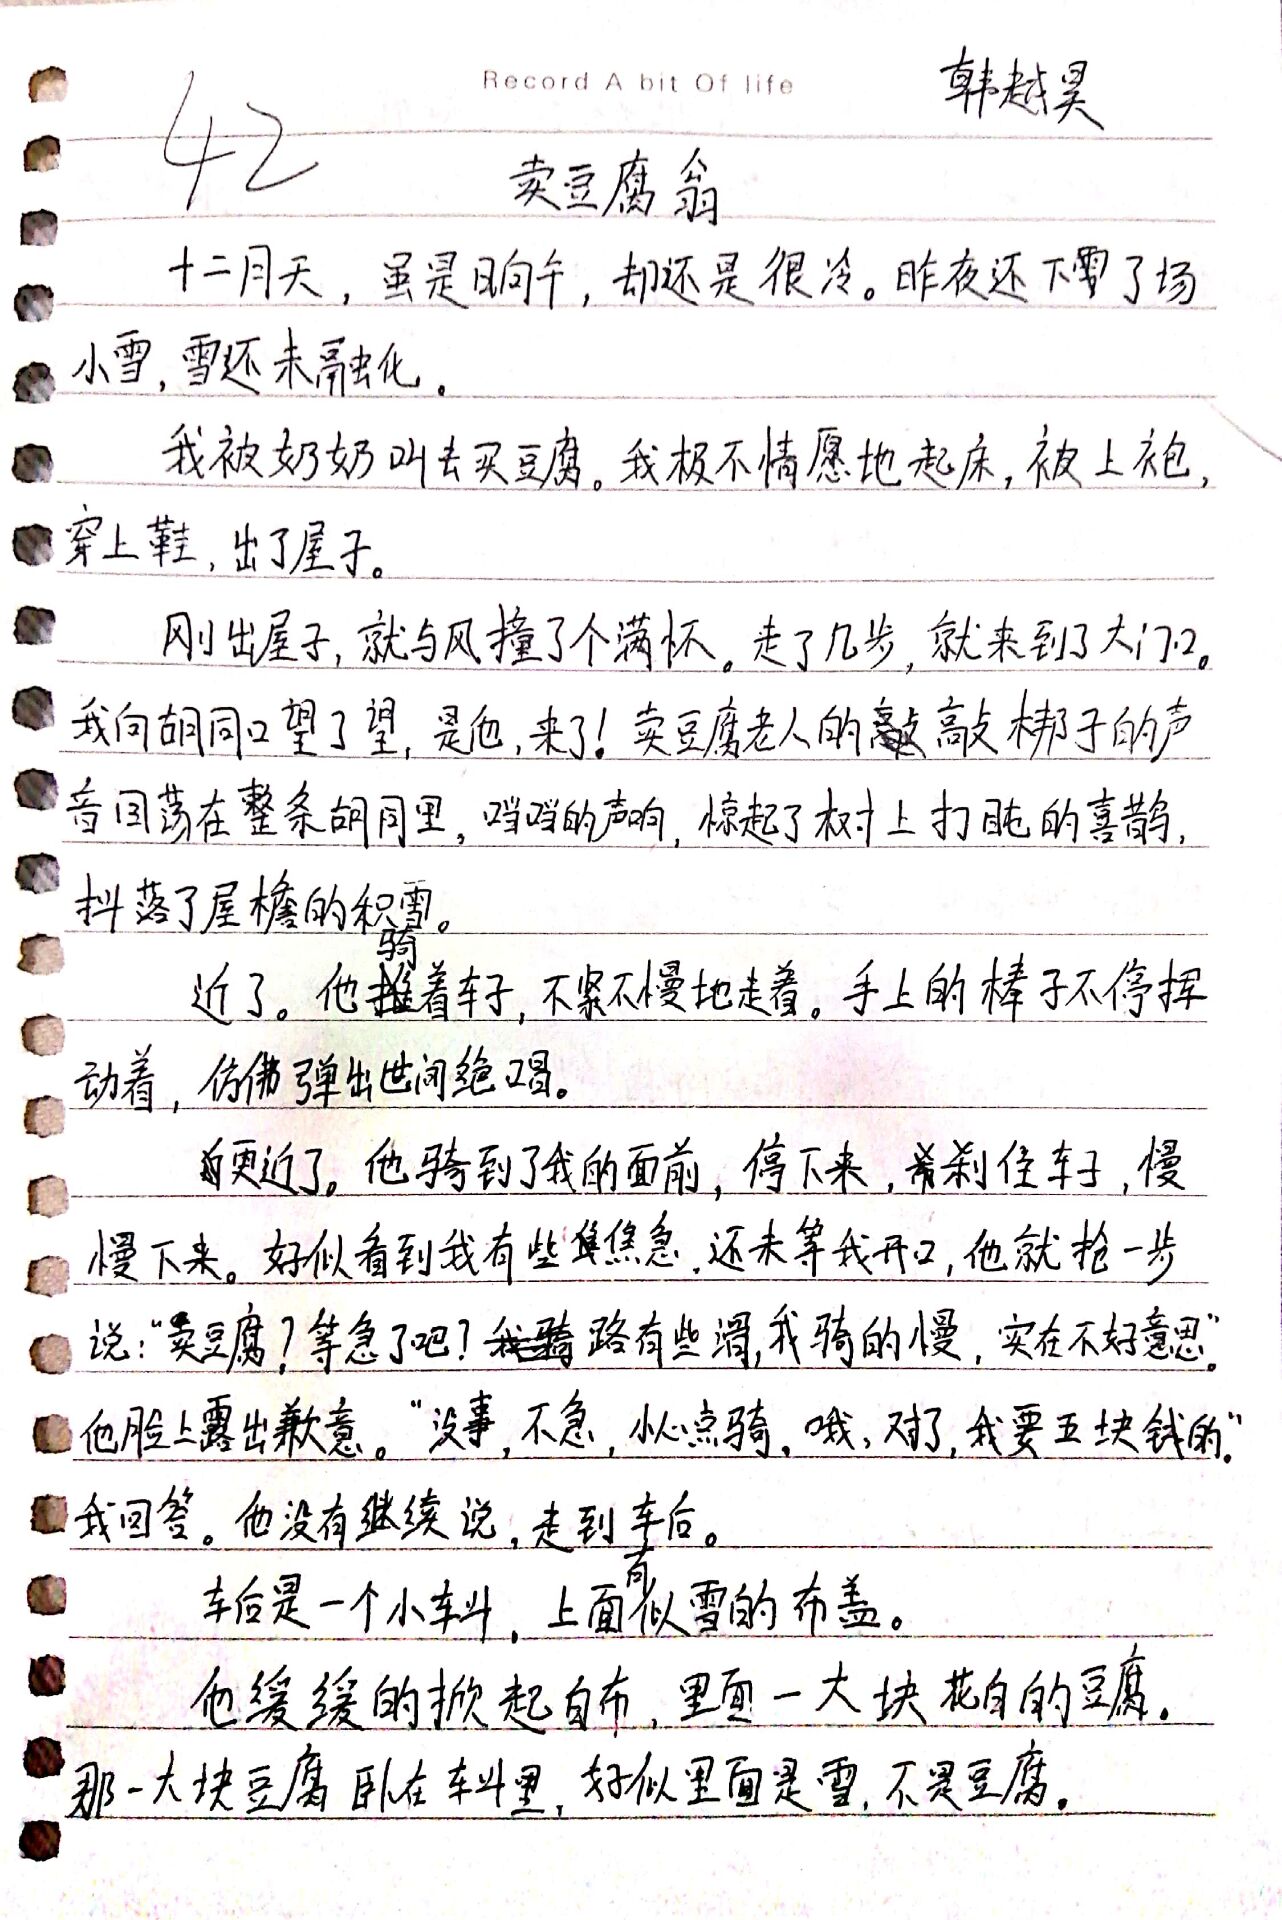 Record A bit Of life
韩越昊
42
卖豆腐翁
十二月天，虽是晌午，却还是很冷。昨夜还下了场
小雪，雪还未融化。
我被奶奶叫去买豆腐。我极不情愿地起床，被上袍，
穿上鞋，出了屋子。
刚出屋子，就与风撞了个满怀。走了几步，就来到了大门口。
我向胡同口望了望，是他，来了！卖豆腐老人的敲梆子的声
音回荡在整条胡同里，当当的声响，惊起了树上打盹的喜鹊，
抖落了屋檐的积雪。
近了。他骑着车子，不紧不慢地走着。手上的棒子不停挥
动着，仿佛弹出世间绝唱。
更近了。他骑到了我的面前，停下来，刹住车子，慢
慢下来。好似看到我有些焦急，还未等我开口，他就抢一步
说：“卖豆腐？等急了吧？路有些滑，我骑的慢，实在不好意思”。
他脸上露出歉意。“没事，不急，小心点骑。哦，对了，我要五块钱的。”
我回答。他没有继续说，走到车后。
车后是一个小车斗，上面有似雪的布盖。
他缓缓的掀起白布，里面一大块花白的豆腐。
那一大块豆腐卧在车斗里，好似里面是雪，不是豆腐。